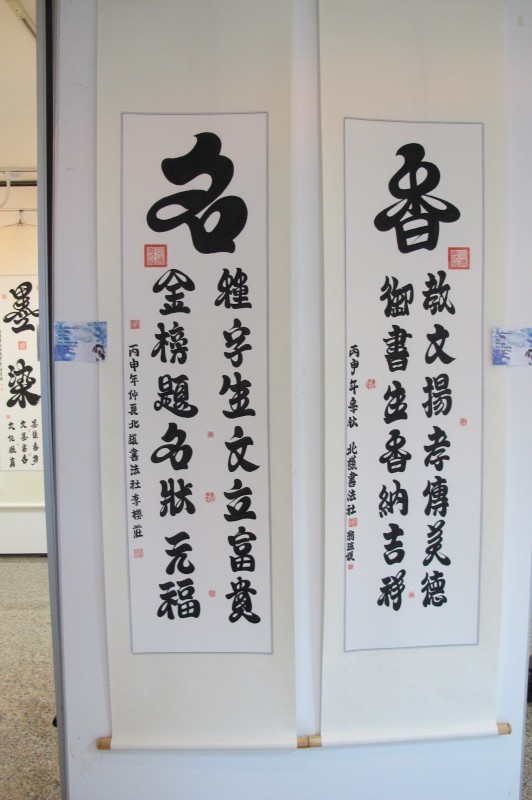 香
教文揚孝傳美德
御書生香納吉祥
丙申年季秋 北護書法社
名
種字生文立富貴
金榜題名狀元福
丙申年仲夏北護書法社李櫻莊
墨染